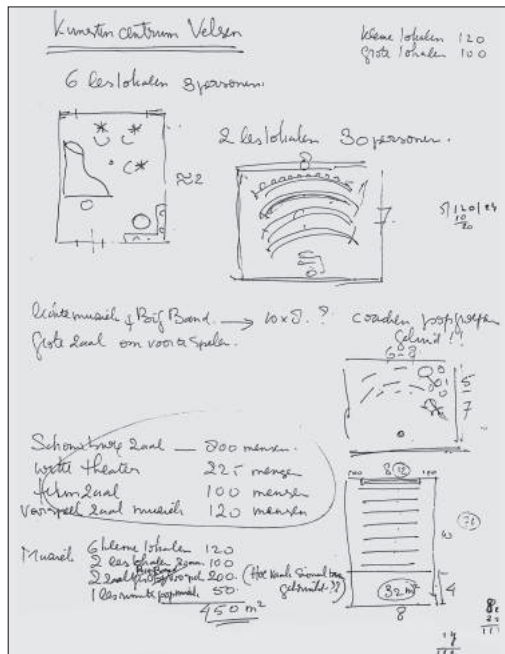 Kunsten centrum Velsen
kleine lokalen 120
grote lokalen 100
6 leslokalen 3 personen.
2 leslokalen 30 personen.
≈2
8
7
5/120/24
10
20
lichte muziek & Big Band. → 10x8.? coachen popgroepen
geluid!!
grote zaal om voor te spelen.
6-8
5
7
Schouwburg zaal — 800 mensen.
witte theater 225 mensen
filmzaal 100 mensen
voorspeel zaal muziek 120 mensen
100 8 100
10
Muziek 6 kleine lokalen 120
2 leslokalen 100
Big Band
2 zaal voorspel 200.
1 lesruimte popmuziek 50.
450 m²
32 m²
4
8